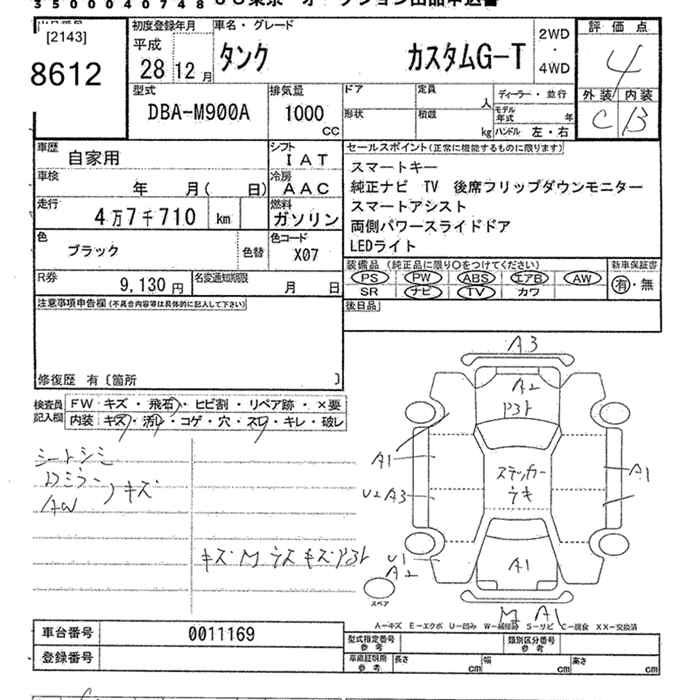 3500040748
[2143]
8612
初度登録年月
平成
28年12月
車名・グレード
タンク カスタムG-T
2WD
・
4WD
評価点
4
外装 内装
C B
型式
DBA-M900A
排気量
1000
CC
ドア
形状
定員
人
積載
kg
ディーラー・並行
モデル年式 年
ハンドル 左・右
車歴
自家用
シフト
IAT
車検
年 月( 日)
冷房
AAC
走行
4万7千710 km
燃料
ガソリン
色
ブラック
色替
色コード
X07
R券
9,130円
名変通知期限
月 日
セールスポイント(正常に機能するものに限ります)
スマートキー
純正ナビ TV 後席フリップダウンモニター
スマートアシスト
両側パワースライドドア
LEDライト
装備品 (純正品に限り○をつけてください)
PS PW ABS エアB AW
SR ナビ TV カワ
新車保証書
有・無
後日品
注意事項申告欄(不具合内容等は具体的に記入して下さい)
修復歴 有〔箇所 〕
検査員
記入欄
FW キズ・飛石・ヒビ割・リペア跡・×要
内装 キズ・汚れ・コゲ・穴・スレ・キレ・破レ
シートシミ
Dミラー
AW
キズ
キズM ラス キズ
A3
A2
A1
U2 A3
ステッカー
ウキ
A1
U1
A2
A1
スペア
M A1
A−キズ E−エクボ U−凹み W−補修跡 S−サビ C−腐食 XX−交換済
車台番号 0011169
登録番号
型式指定番号
参考
類別区分番号
参考
車庫証明用
参考
長さ cm 幅 cm 高さ cm